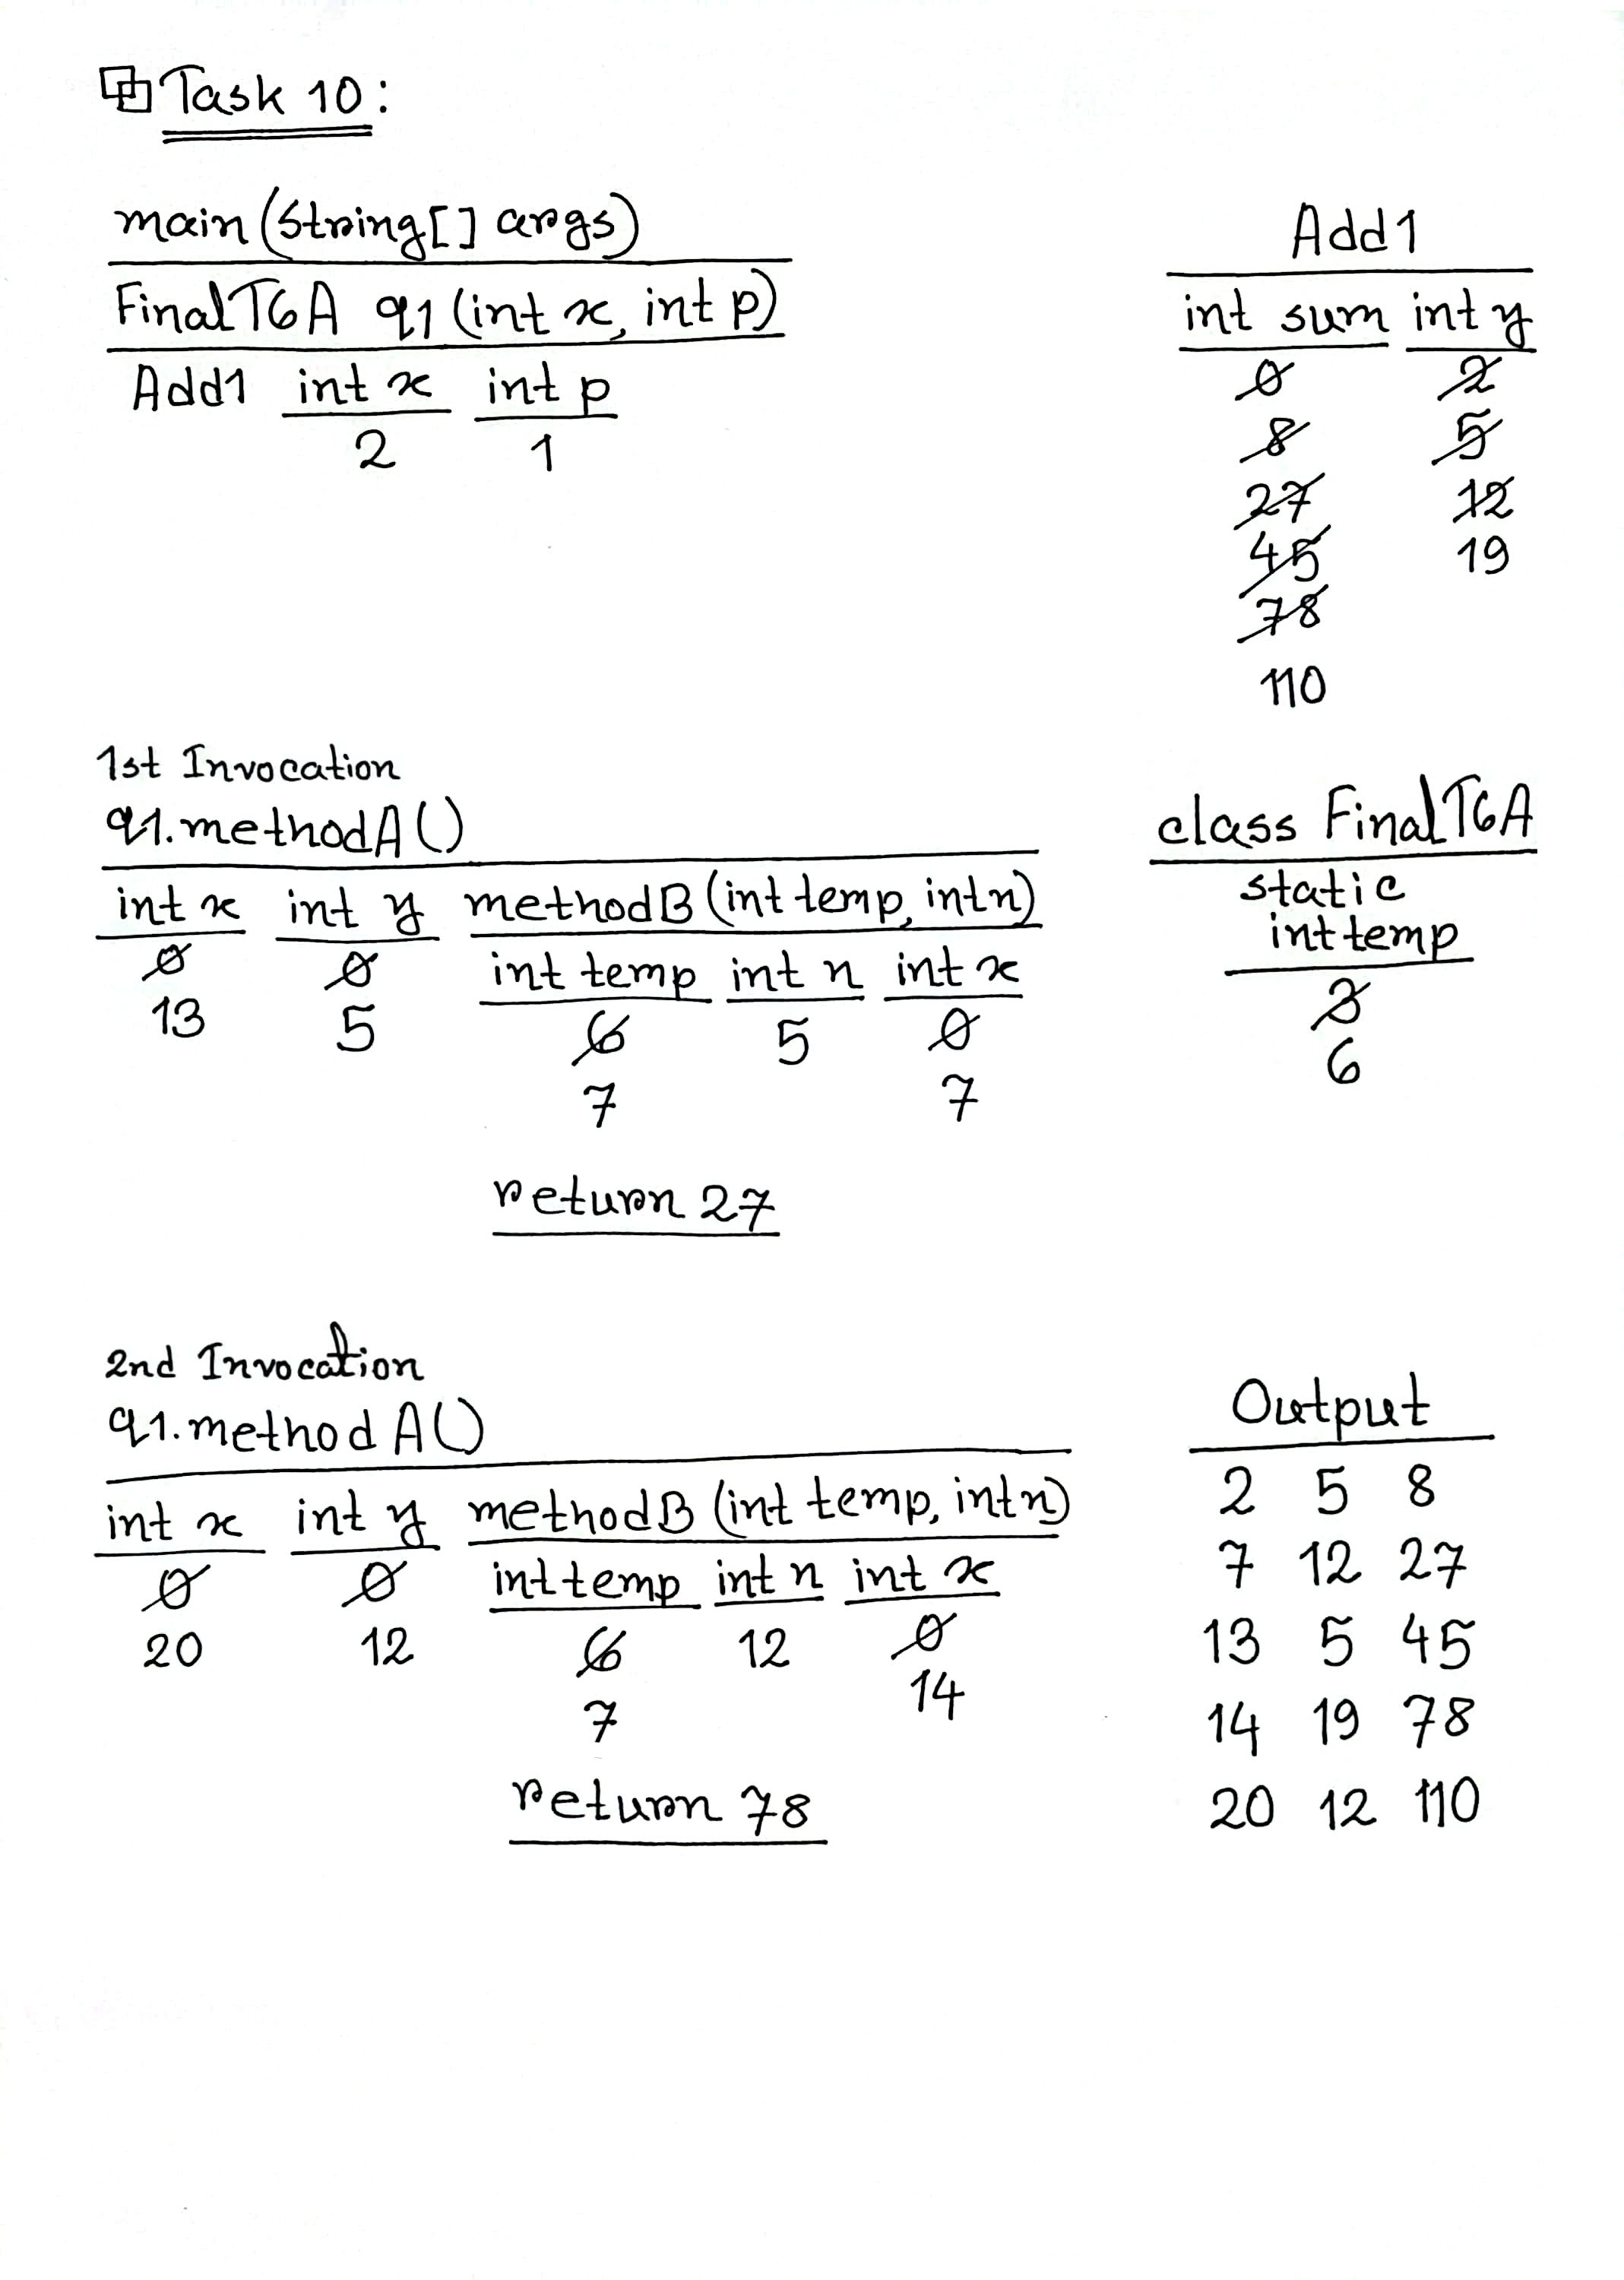 Task 10:
main(String[] args)
FinalT6A q1(int x, int p)
Add1 int x int p
2 1
Add1
int sum int y
0 2
8 5
27 12
45 19
78
110
1st Invocation
q1.methodA()
int x int y methodB(int temp, int n)
0 0 int temp int n int x
13 5 6 5 0
7 7
return 27
class FinalT6A
static
int temp
3
6
2nd Invocation
q1.methodA()
int x int y methodB(int temp, int n)
0 0 int temp int n int x
20 12 6 12 0
7 14
return 78
Output
2 5 8
7 12 27
13 5 45
14 19 78
20 12 110